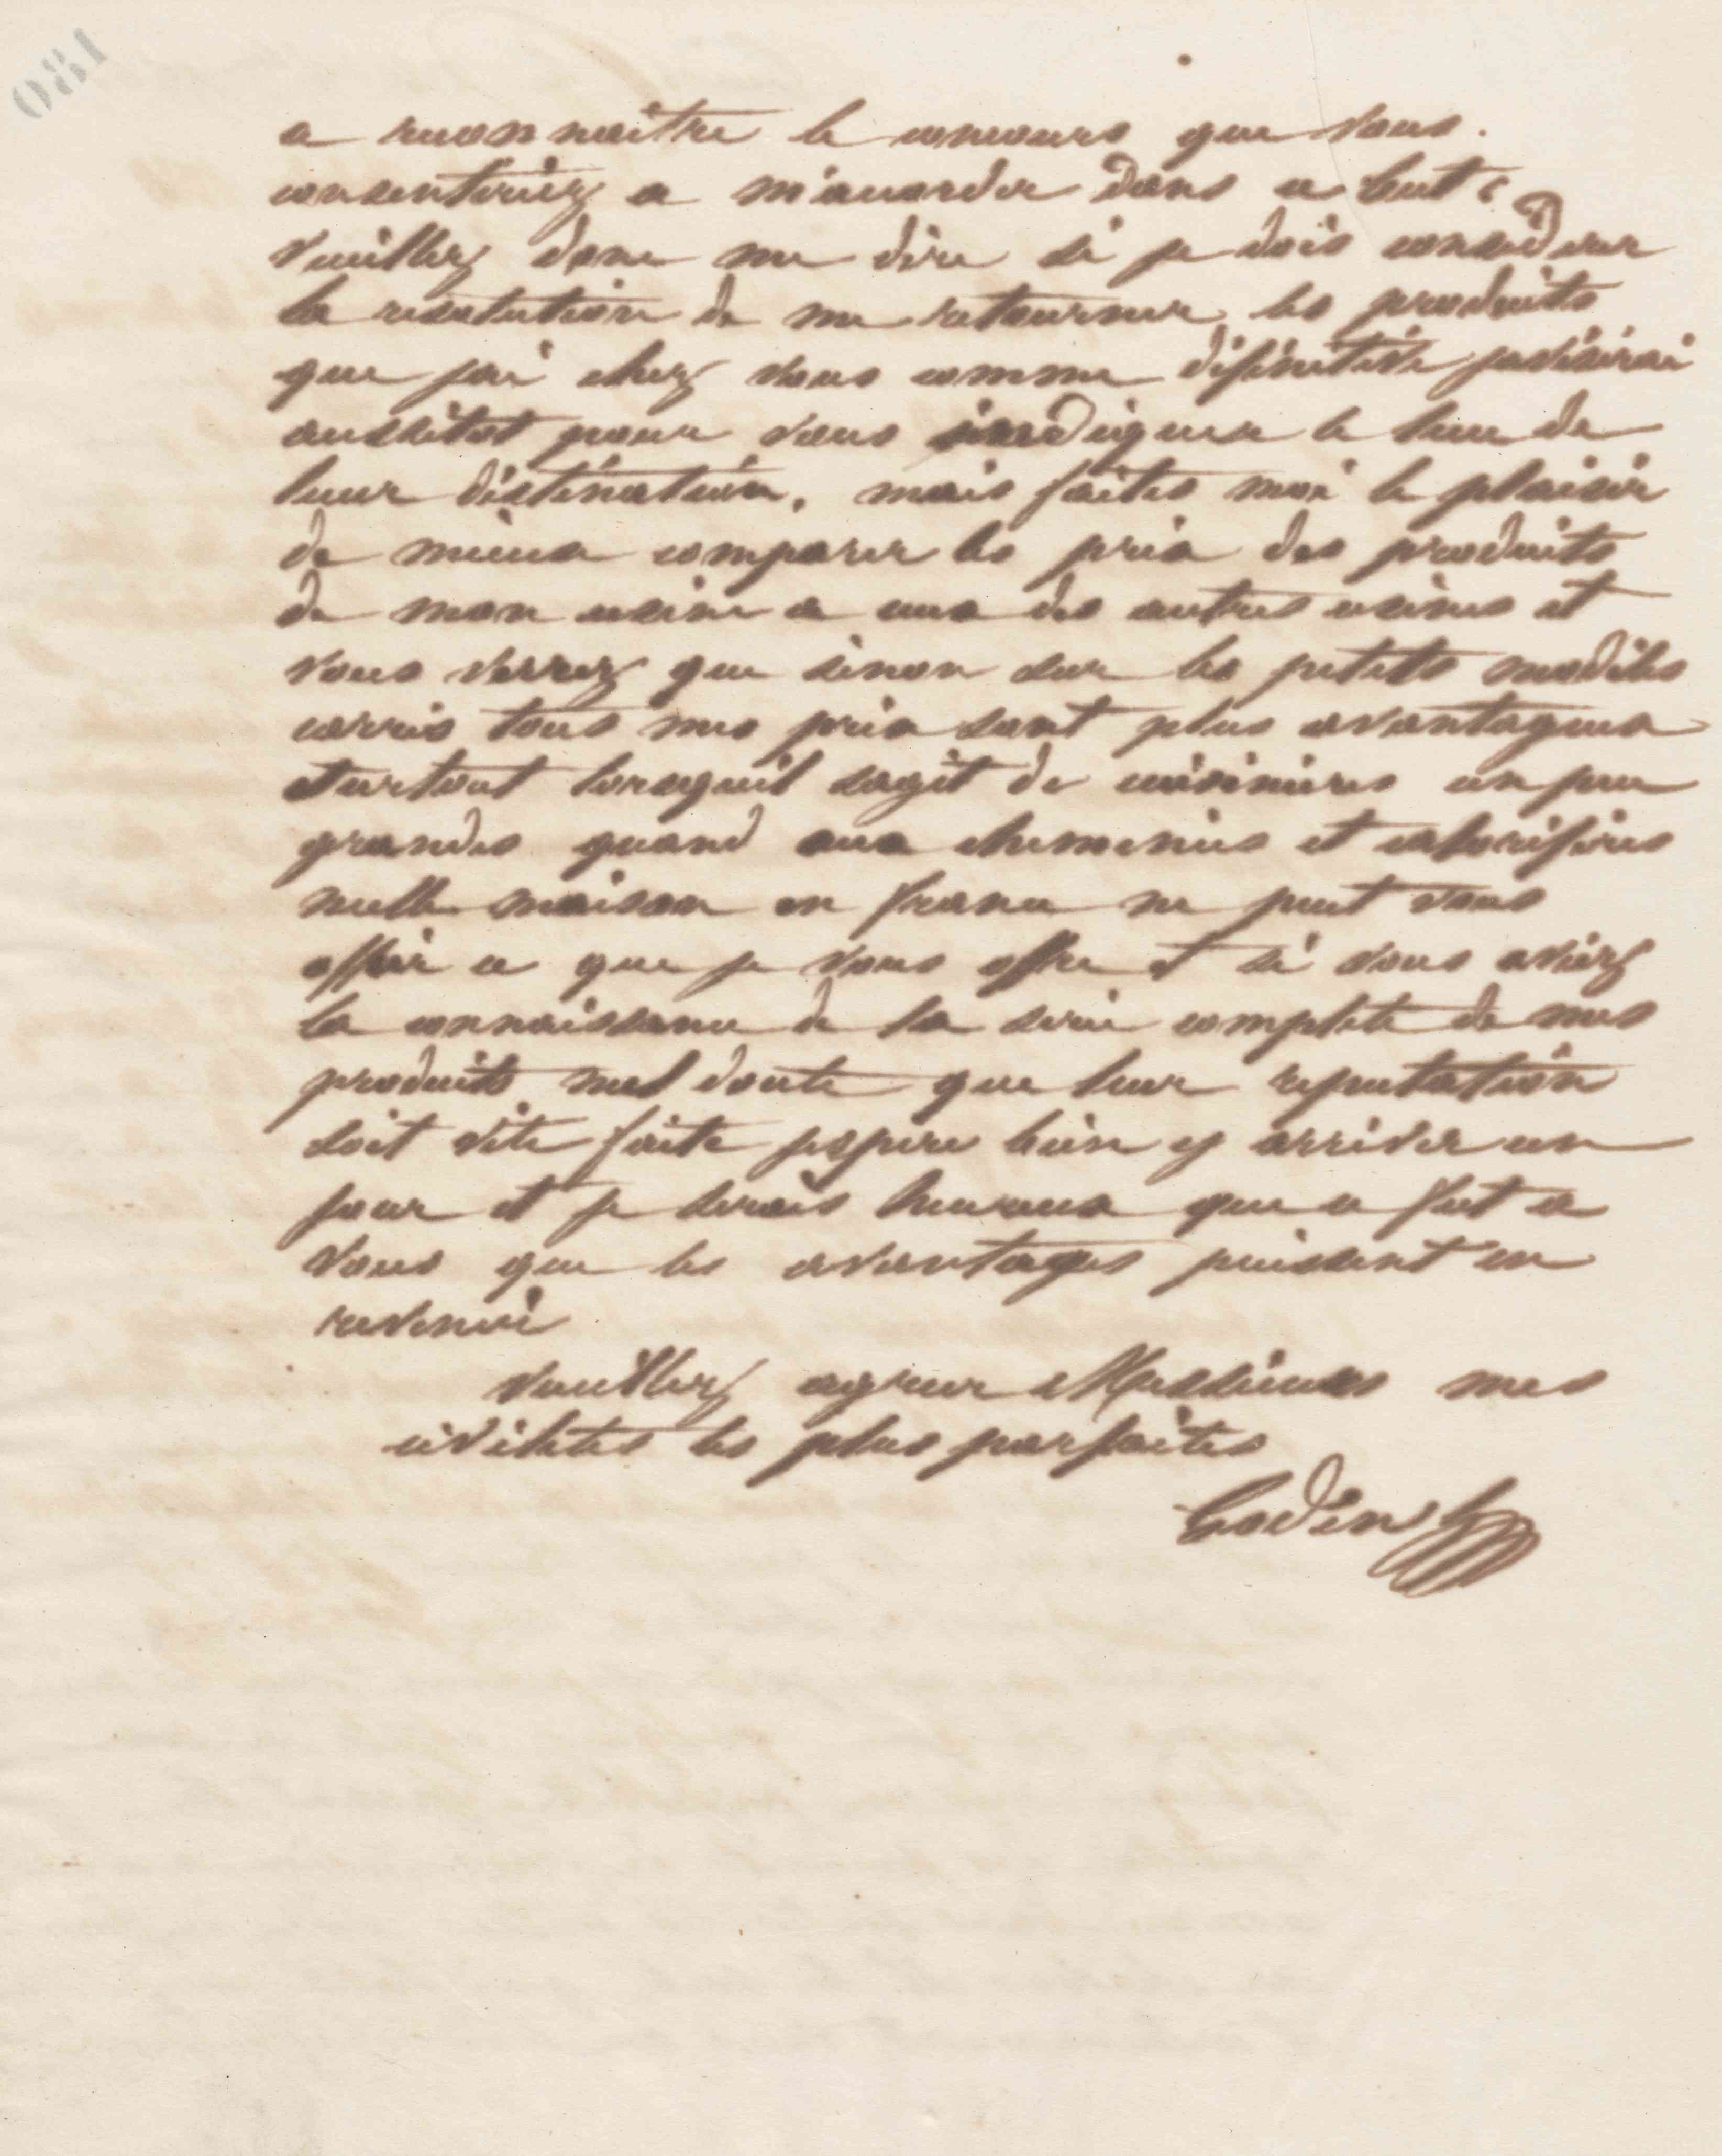 180
a reconnaitre le concours que vous
consentiriez a m'accorder dans ce but.
Veuillez donc me dire si je dois considerer
la resolution de me retourner les produits
que jai chez vous comme difinitive javiserai
aussitot pour vous indiquer le lieu de
leur distination, mais faites moi le plaisir
de mieux comparer les prix des produits
de mon usine a ceux des autres usines et
vous verrez que sinon sur les petits modèles
carrés tous mes prix sont plus avantageux
surtout lorsquil sagit de cuisinieres un peu
grandes quand aux cheminées et calorifères
nulle maison en france ne peut vous
offrir ce que je vous offre et si vous aviez
la connaissance de la serie complete de mes
produits nul doute que leur reputation
soit vite faite jespere bien y arriver un
jour et je serais heureux que ce fut a
vous que les avantages puissent en
revenir
Veuillez agreer Messieurs mes
civilités les plus parfaites
Godin